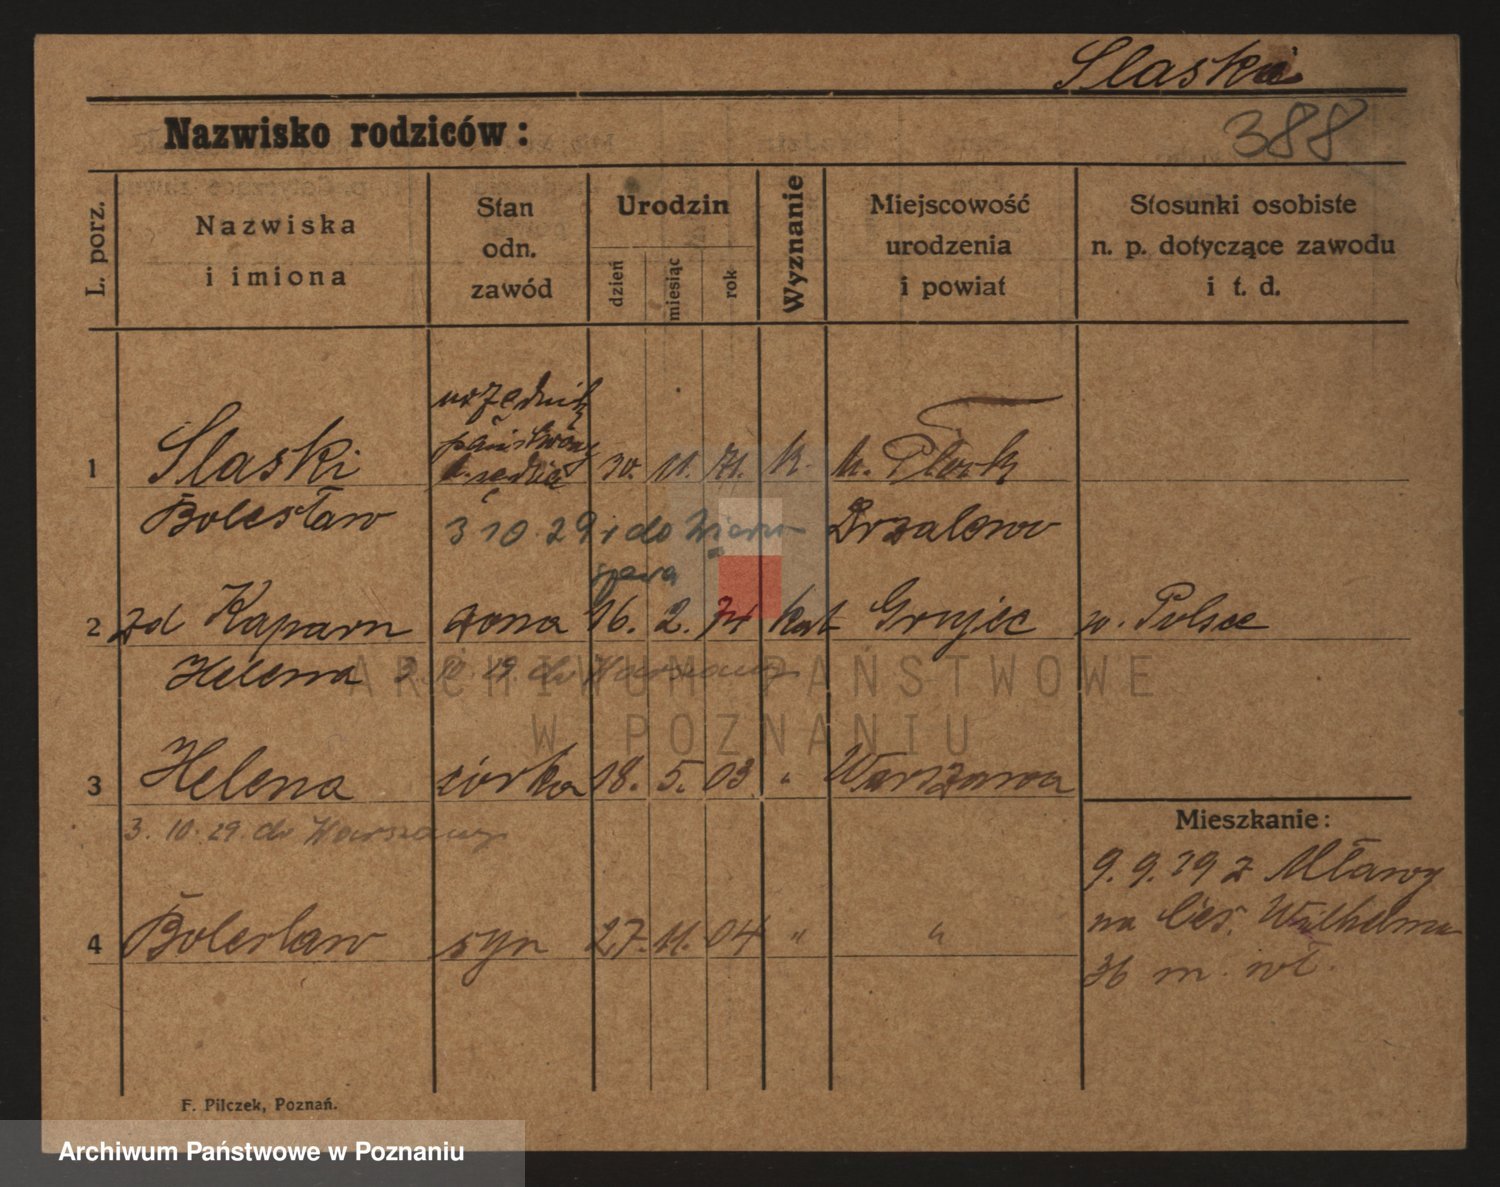 Slaski
388
Nazwisko rodziców:
L. porz.
Nazwiska
i imiona
Stan
odn.
zawód
Urodzin
dzień
miesiąc
rok
Wyznanie
Miejscowość
urodzenia
i powiat
Stosunki osobiste
n. p. dotyczące zawodu
i t. d.
urzędnik
państwowy
1 Slaski 30. 11. 71. k. Płock
Bolesław 3 10. 29 do
2 zd Kaparn żona 16. 2. 74 kat Grujec w. Polsce
Helena 3. 10. 29. do Warszawy
3 Helena córka 18. 5. 03 " Warszawa
3. 10. 29. do Warszawy
Mieszkanie:
9. 9. 19 z Mławy
na Ces. Wilhelma
36 m. wł.
4 Bolesław syn 27. 11. 04 " "
F. Pilczek, Poznań.
ARCHIWUM PAŃSTWOWE
W POZNANIU
Archiwum Państwowe w Poznaniu